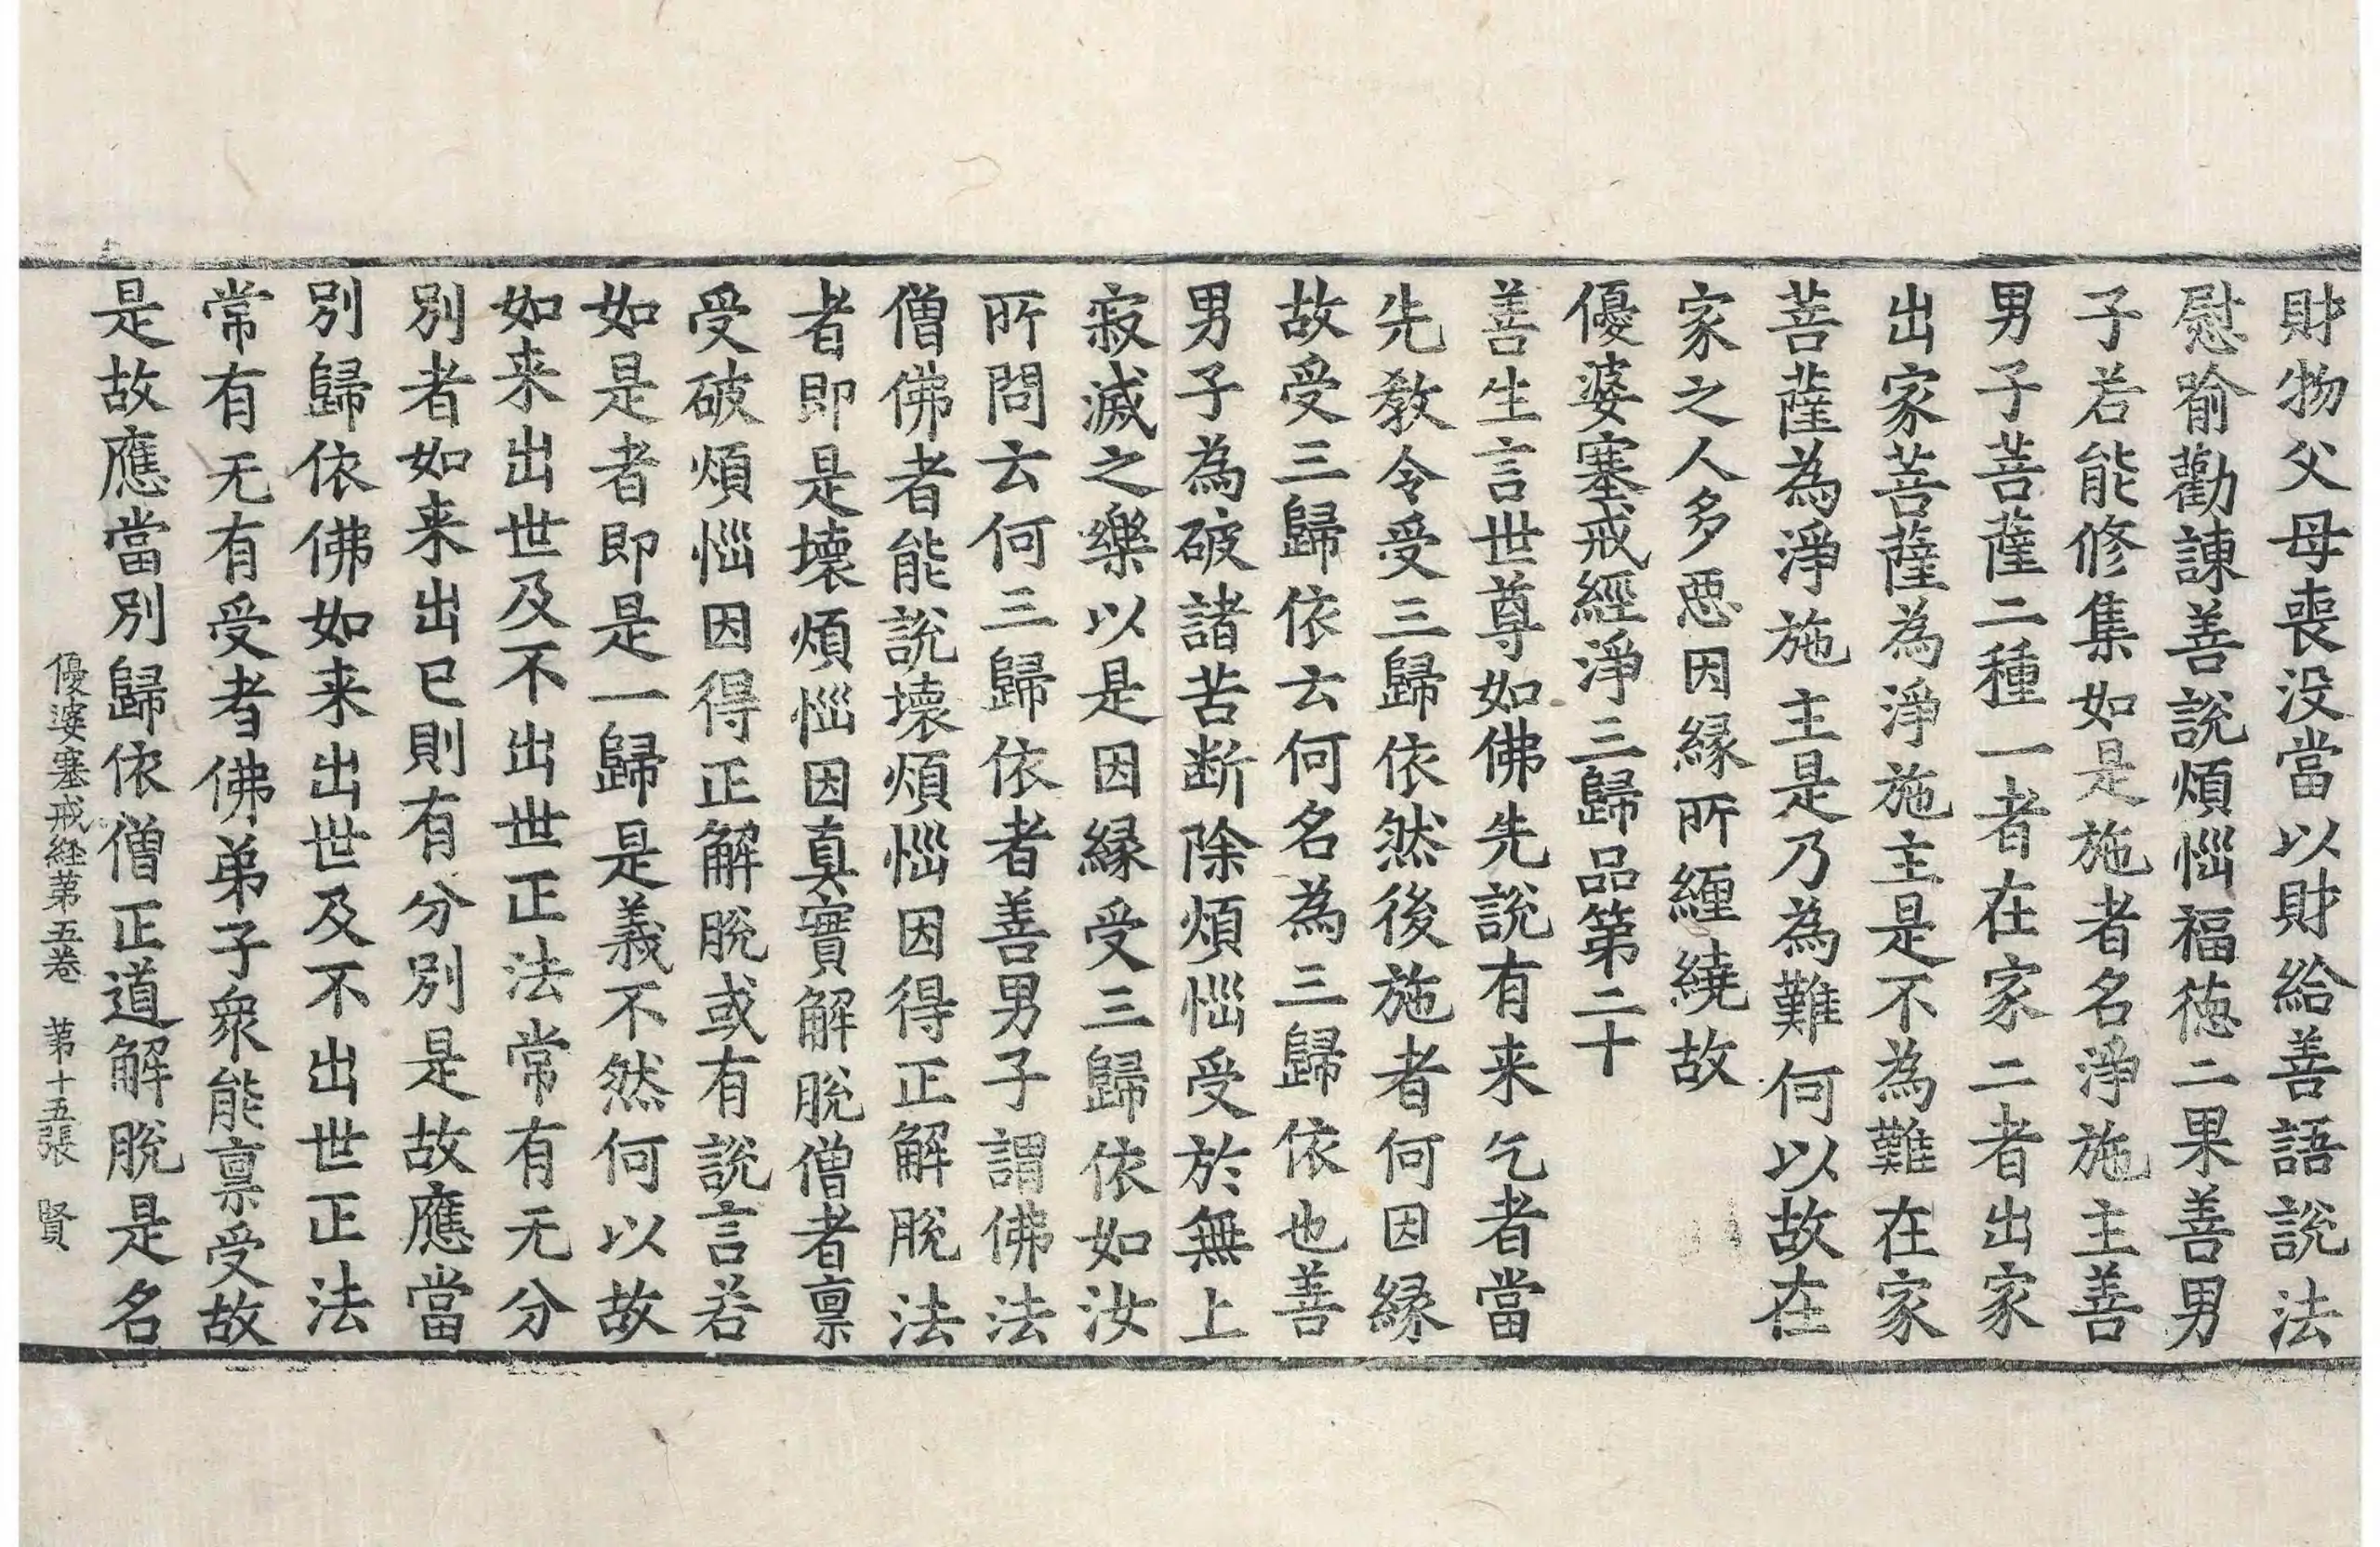 財物父母喪没當以財給善語說法
慰喻勸諫善說煩惱福徳二果善男
子若能修集如是施者名淨施主善
男子菩薩二種一者在家二者出家
出家菩薩為淨施主是不為難在家
菩薩為淨施主是乃為難何以故在
家之人多惡因縁所纏繞故
優婆塞戒經淨三歸品第二十
善生言世尊如佛先說有来乞者當
先教令受三歸依然後施者何因縁
故受三歸依云何名為三歸依也善
男子為破諸苦断除煩惱受於無上
寂滅之樂以是因縁受三歸依如汝
所問云何三歸依者善男子謂佛法
僧佛者能說壞煩惱因得正解脫法
者即是壞煩惱因真實解脫僧者禀
受破煩惱因得正解脫或有說言若
如是者即是一歸是義不然何以故
如来出世及不出世正法常有无分
別者如来出已則有分別是故應當
別歸依佛如来出世及不出世正法
常有无有受者佛弟子衆能禀受故
是故應當別歸依僧正道解脫是名
優婆塞戒経第五巻 第十五張 賢